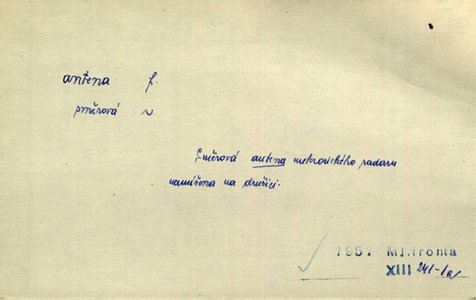 antena f.
směrová ~
Směrová antena metrového radaru
namířena na družici.
1957 Ml.fronta
XIII 241-1